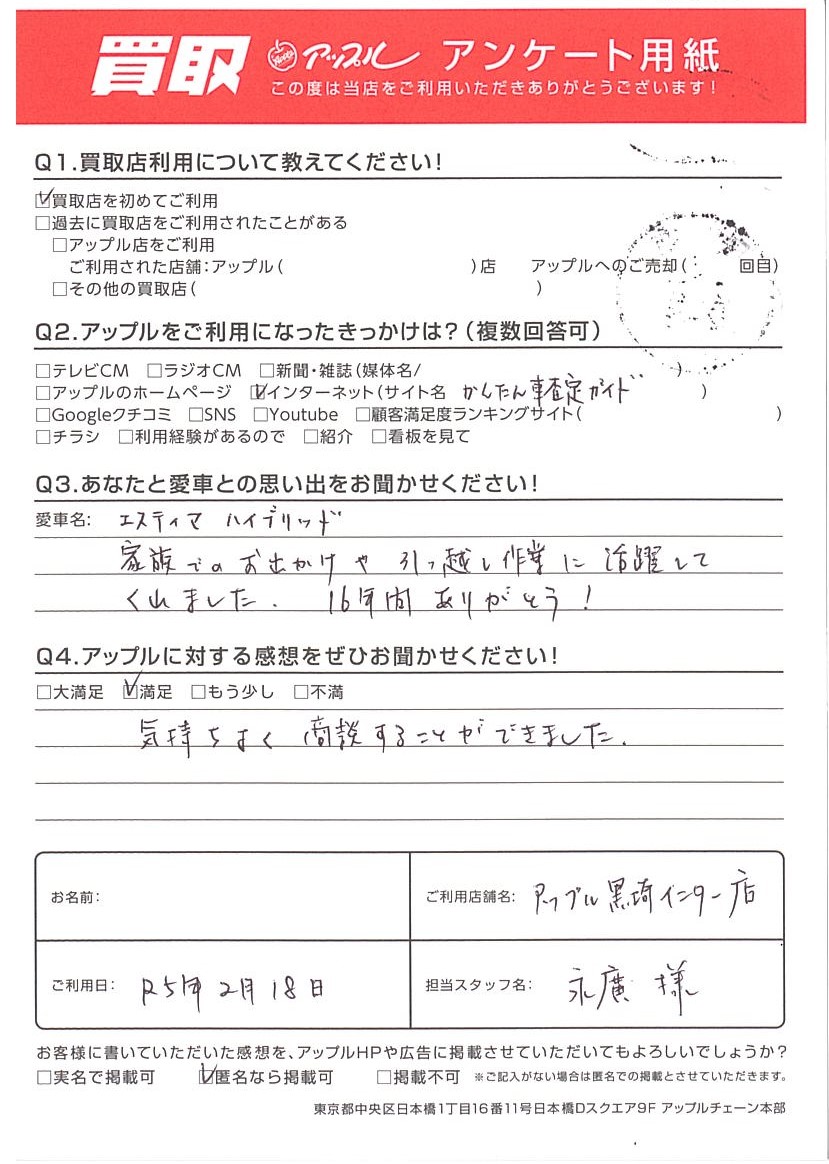 買取 アップル アンケート用紙
この度は当店をご利用いただきありがとうございます!
Q1.買取店利用について教えてください!
☑買取店を初めてご利用
□過去に買取店をご利用されたことがある
□アップル店をご利用
ご利用された店舗:アップル( )店 アップルへのご売却( 回目)
□その他の買取店( )
Q2.アップルをご利用になったきっかけは?(複数回答可)
□テレビCM □ラジオCM □新聞・雑誌(媒体名/ )
□アップルのホームページ ☑インターネット(サイト名 かんたん車査定ガイド )
□Googleクチコミ □SNS □Youtube □顧客満足度ランキングサイト( )
□チラシ □利用経験があるので □紹介 □看板を見て
Q3.あなたと愛車との思い出をお聞かせください!
愛車名: エスティマ ハイブリッド
家族でのお出かけや引っ越し作業に活躍して
くれました. 16年間ありがとう!
Q4.アップルに対する感想をぜひお聞かせください!
□大満足 ☑満足 □もう少し □不満
気持ちよく商談することができました.
お名前:
ご利用店舗名: アップル黒埼インター店
ご利用日: R5年2月18日
担当スタッフ名: 永廣 様
お客様に書いていただいた感想を、アップルHPや広告に掲載させていただいてもよろしいでしょうか?
□実名で掲載可 ☑匿名なら掲載可 □掲載不可 ※ご記入がない場合は匿名での掲載とさせていただきます。
東京都中央区日本橋1丁目16番11号日本橋Dスクエア9F アップルチェーン本部